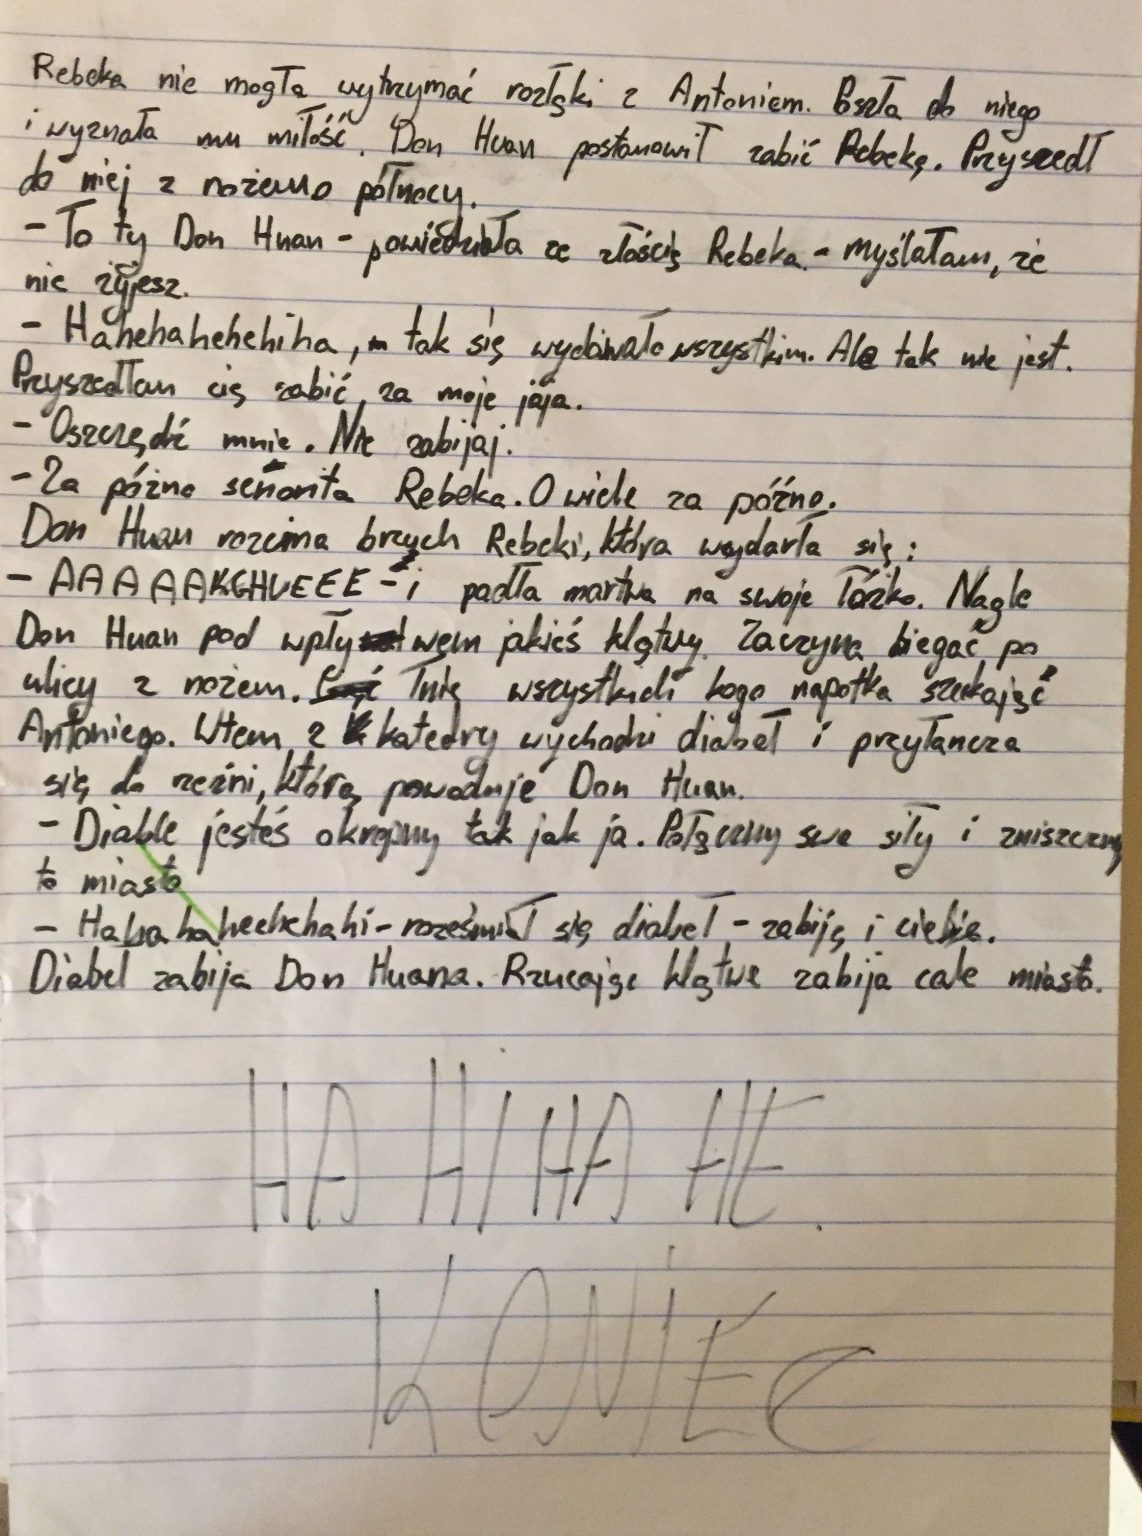 Rebeka nie mogła wytrzymać rozłąki z Antoniem. Poszła do niego
i wyznała mu miłość. Don Huan postanowił zabić Rebekę. Przyszedł
do niej z nożem o północy.
- To ty Don Huan - powiedziała ze złością Rebeka. - myślałam, że
nie żyjesz.
- Hahehahehehiha, tak się wydawało wszystkim. Ale tak nie jest.
Przyszedłam cię zabić, za moje jaja.
- Oszczędź mnie. Nie zabijaj.
- Za późno señorita Rebeka. O wiele za późno.
Don Huan rozcina brzuch Rebeki, która wydarła się:
- AAAAAKGHUEEE - i padła martwa na swoje łóżko. Nagle
Don Huan pod wpływem jakieś klątwy. Zaczyna biegać po
ulicy z nożem. Tnie wszystkich kogo napotka szukając
Antoniego. Wtem z katedry wychodzi diabeł i przyłancza
się do rzeźni, którą powoduje Don Huan.
- Diable jesteś okrojny tak jak ja. Połączmy swe siły i zniszczmy
to miasto
- Hahahaheehehahi - roześmiał się diabeł - zabiję i ciebie.
Diabel zabija Don Huana. Rzucając klątwe zabija całe miasto.
HA HI HA HE.
KONIEC